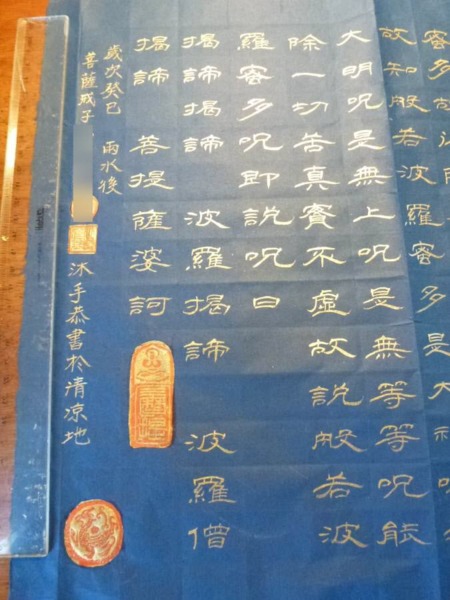 蜜多故得
故知般若波羅蜜多是大神呪
大明呪是無上呪是無等等呪能
除一切苦真實不虛故說般若波
羅蜜多呪即說呪曰
揭諦揭諦 波羅揭諦 波羅僧
揭諦 菩提薩婆訶
歲次癸巳 雨水後
菩薩戒子 沐手恭書於清涼地